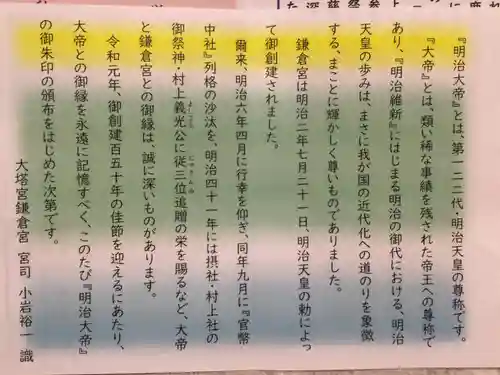 『明治大帝』とは、第一二二代・明治天皇の尊称です。
『大帝』とは、類い稀な事績を残された帝王への尊称で
あり、『明治維新』にはじまる明治の御代における、明治
天皇の歩みは、まさに我が国の近代化への道のりを象徴
する、まことに輝かしく尊いものでありました。
鎌倉宮は明治二年七月二十一日、明治天皇の勅によっ
て御創建されました。
爾来、明治六年四月に行幸を仰ぎ、同年九月に『官幣
中社』列格の沙汰を、明治四十一年には摂社・村上社の
御祭神・村上義光公に従三位追贈の栄を賜るなど、大帝
よしてる じゅさんみ
と鎌倉宮との御縁は、誠に深いものがあります。
令和元年、御創建百五十年の佳節を迎えるにあたり、
大帝との御縁を永遠に記憶すべく、このたび『明治大帝』
の御朱印の頒布をはじめた次第です。
大塔宮鎌倉宮 宮司 小岩裕一 識